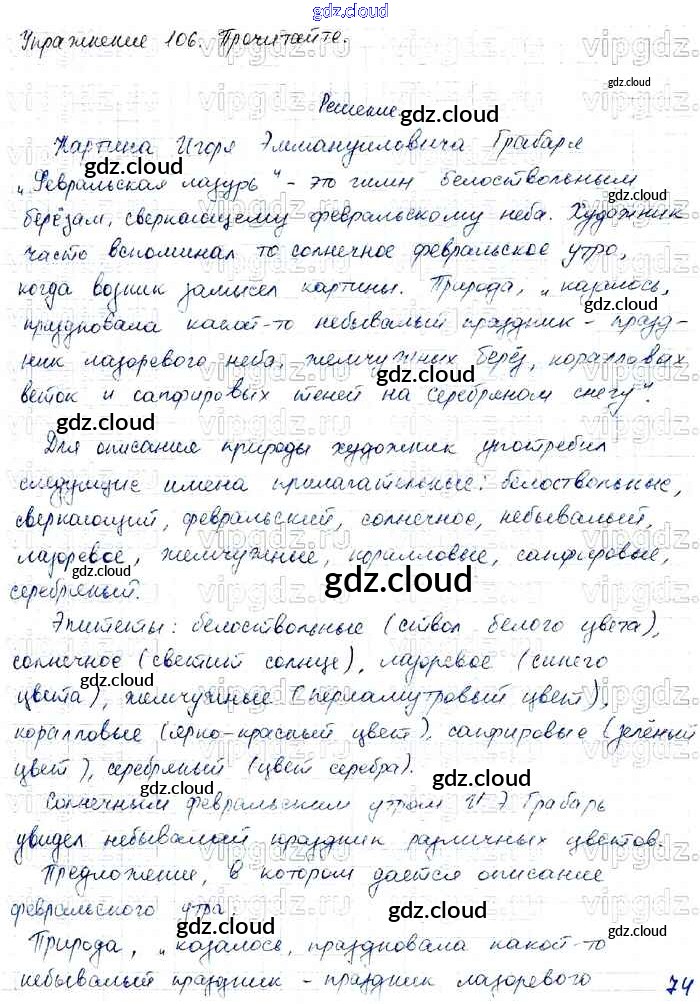 gdz.cloud
Упражнение 106. Прочитайте.
gdz.cloud
Решение gdz.cloud
Картина Игоря Эммануиловича Грабаря
gdz.cloud
„Февральская лазурь" - это гимн белоствольным
gdz.cloud
берёзам, сверкающему февральскому неба. Художник
gdz.cloud
часто вспоминал то солнечное февральское утро,
когда возник замысел картины. Природа, „казалось,
gdz.cloud
праздновала какой-то небывалый праздник - празд-
ник лазоревого неба, жемчужных берёз, коралловых
gdz.cloud
веток и сапфировых теней на серебряном снегу".
gdz.cloud
Для описание природы художник употребил
gdz.cloud
следующие имена прилагательные: белоствольные,
сверкающий, февральский, солнечное, небывалый,
gdz.cloud
лазоревое, жемчужные, коралловые, сапфировые,
gdz.cloud
серебряный.
Эпитеты: белоствольные (ствол белого цвета),
gdz.cloud
солнечное (светит солнце), лазоревое (синего
gdz.cloud
цвета), жемчужные (перламутровый цвет),
gdz.cloud
коралловые (ярко-красный цвет), сапфировые (зелёный
цвет), серебряный (цвет серебра).
gdz.cloud
Солнечным февральским утром И Э Грабарь
увидел небывалый праздник различных цветов.
gdz.cloud
Предложение, в котором дается описание
февральского утра:
gdz.cloud
Природа, „казалось, праздновала какой-то
небывалый праздник - праздник лазоревого
74